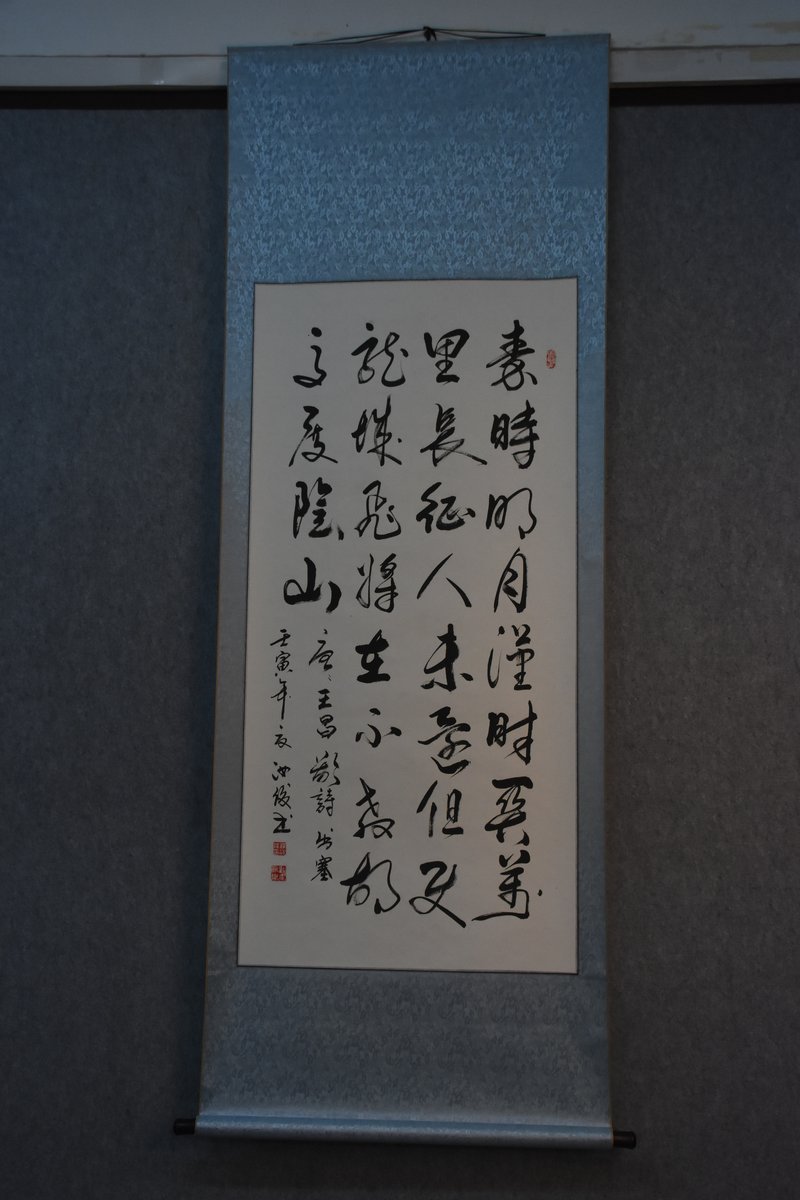 秦時明月漢时關萬
里長征人未還但使
龍城飛將在不教胡
馬度陰山
唐、王昌齡詩 出塞
壬寅年夏 俊书